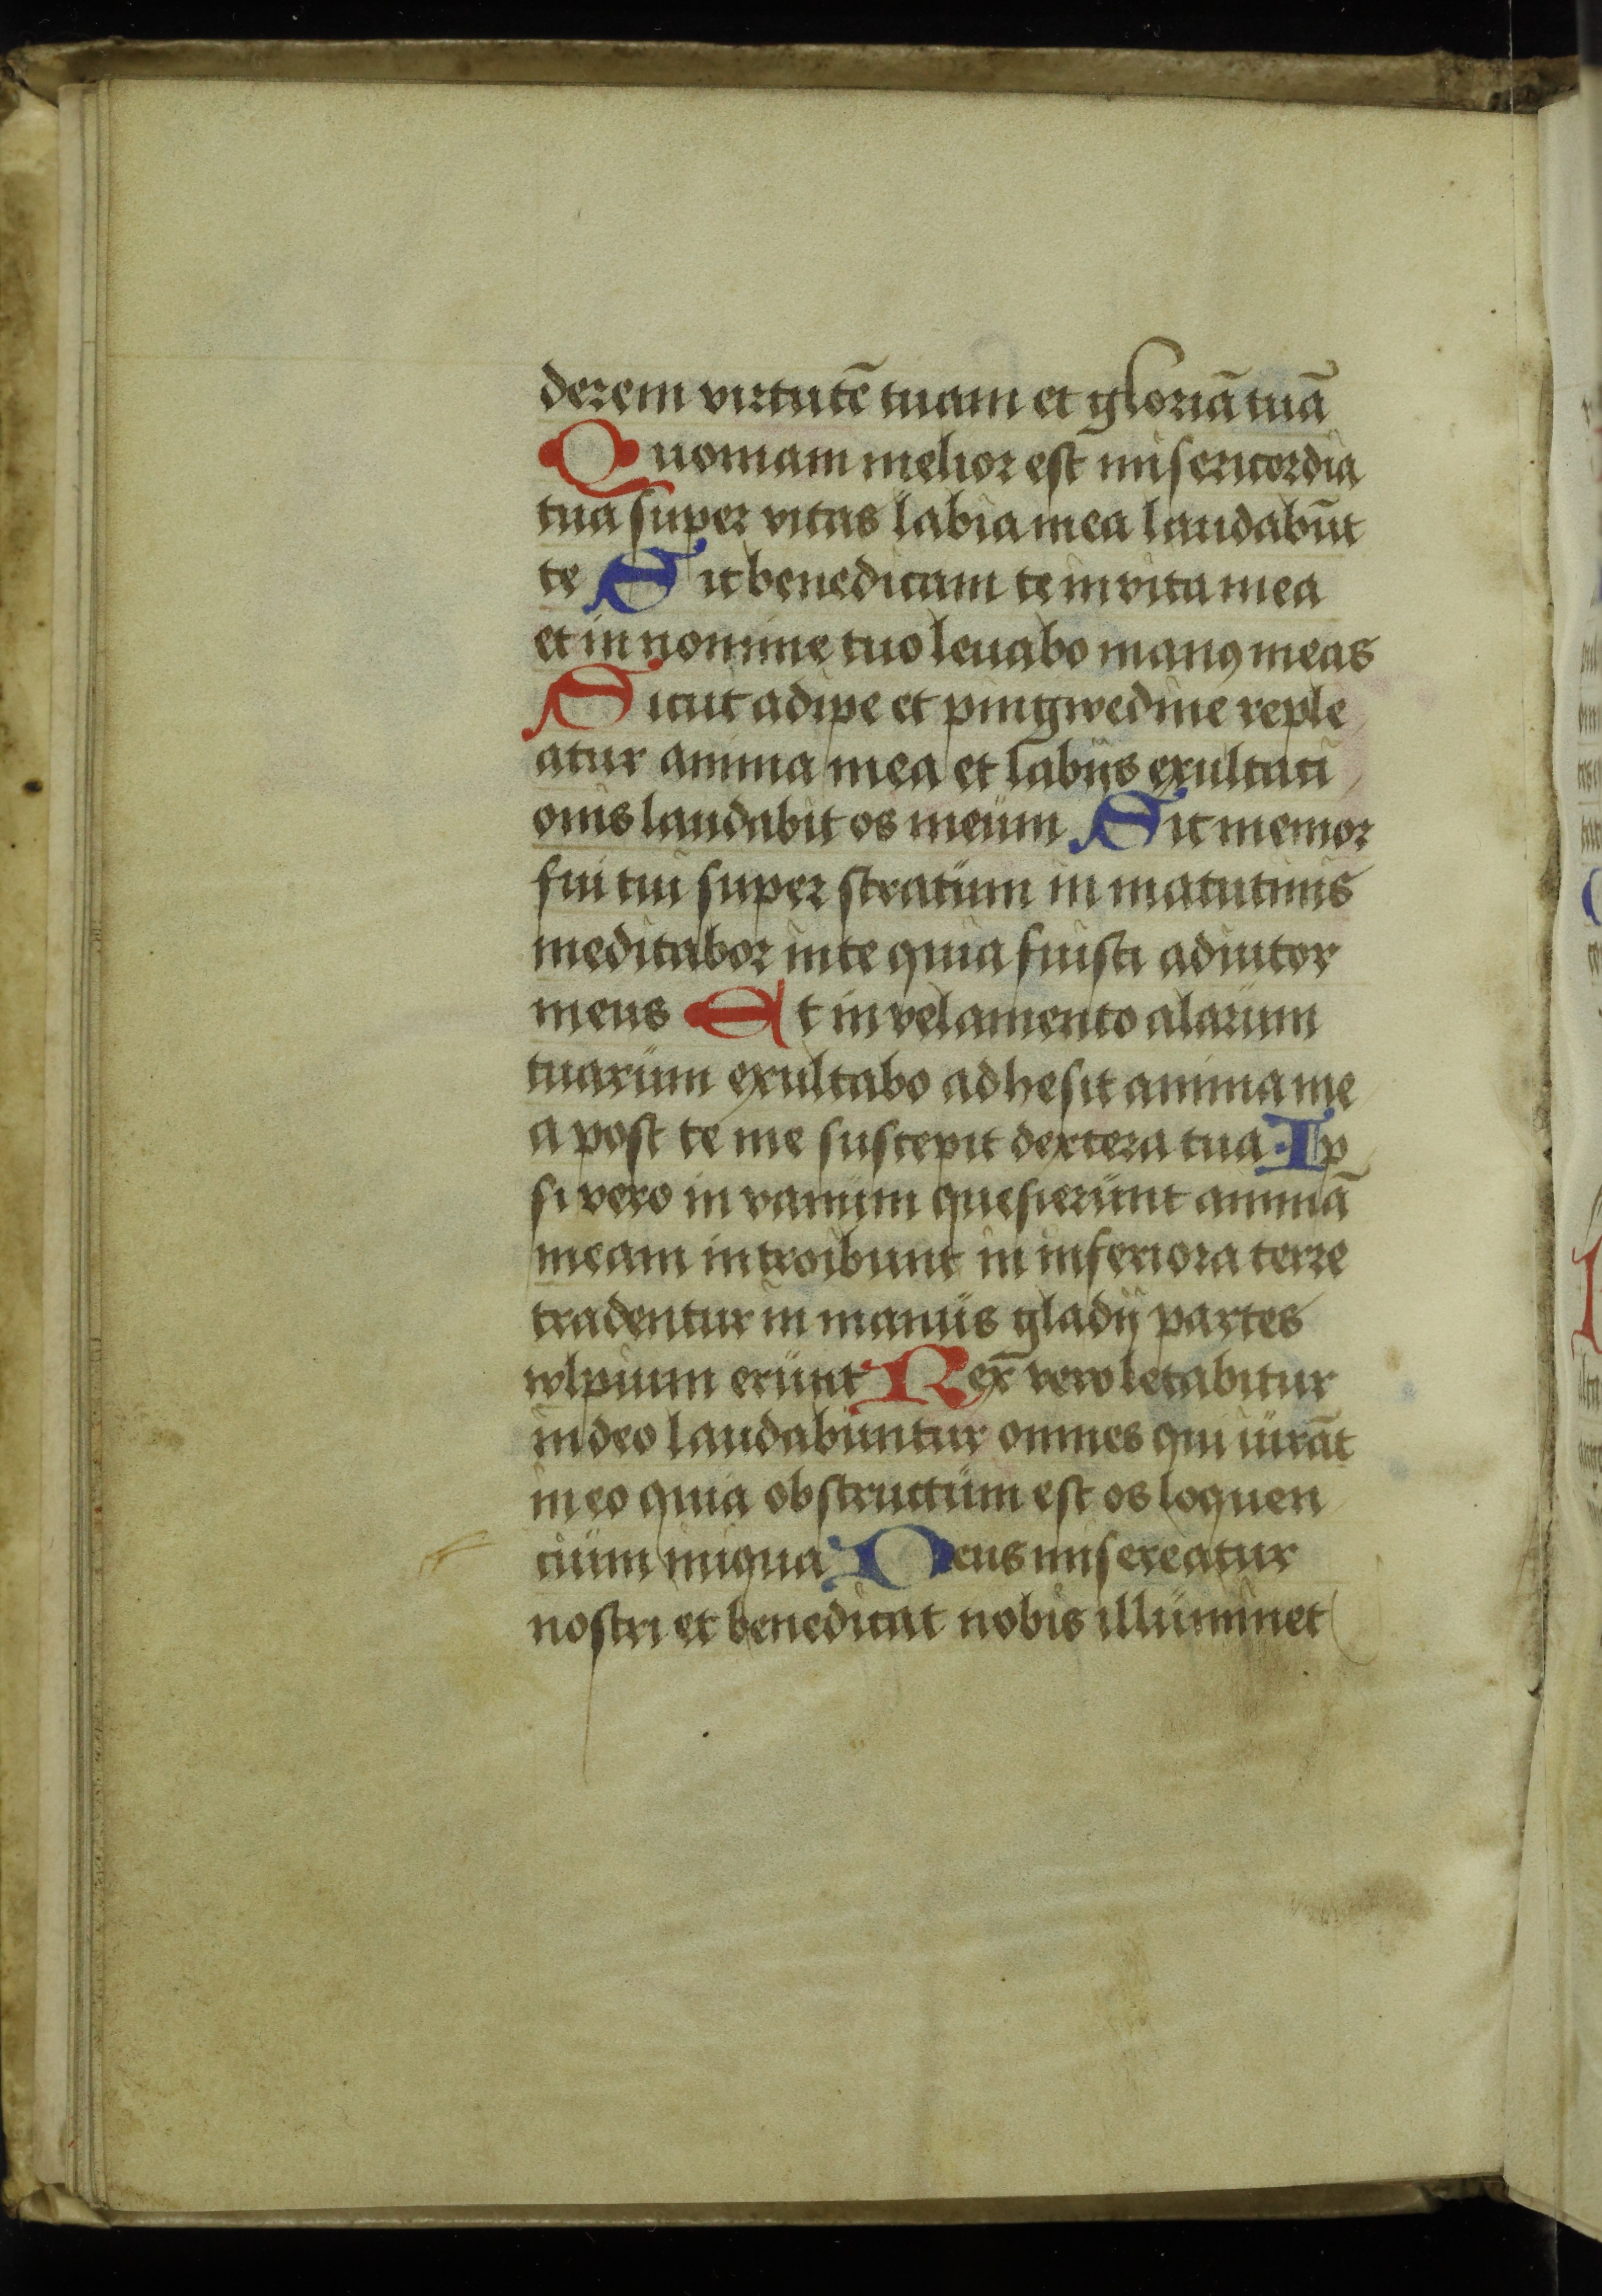 derem virtutē tuam et gloriā tuā
Quoniam melior est misericordia
tua super vitas labia mea laudabūt
te Sic benedicam te in vita mea
et in nomine tuo leuabo manꝯ meas
Sicut adipe et pingwedine reple
atur anima mea et labijs exultati
onis laudabit os meum Sic memor
fui tui super stratum in matutinis
meditabor in te quia fuisti adiutor
meus Et in velamento alarum
tuarum exultabo adhesit anima me
a post te me suscepit dextera tua Ip
si vero in vanum quesierunt animā
meam introibunt in inferiora terre
tradentur in manus gladij partes
wlpium erunt Rex vero letabitur
in deo laudabuntur omnes qui iurāt
in eo quia obstructum est os loquen
cium iniqua Deus misereatur
nostri et benedicat nobis illuminet